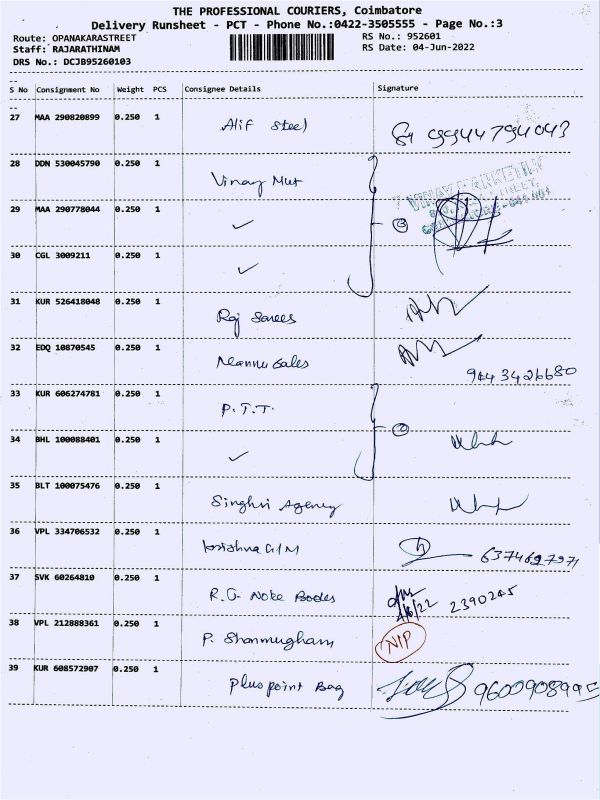 THE PROFESSIONAL COURIERS, Coimbatore
Delivery Runsheet - PCT - Phone No.:0422-3505555 - Page No.:3
Route: OPANAKARASTREET RS No.: 952601
Staff: RAJARATHINAM RS Date: 04-Jun-2022
DRS No.: DCJB95260103
S No Consignment No Weight PCS Consignee Details Signature
27 MAA 290820899 0.250 1 Alif Steel 9944794043
28 DDN 530045790 0.250 1 Vinay Mut
29 MAA 290778044 0.250 1 ✓ ③
30 CGL 3009211 0.250 1 ✓
31 KUR 526418048 0.250 1 Raj Sarees
32 EDQ 10870545 0.250 1 Sales 9443426680
33 KUR 606274781 0.250 1 P.T.T.
34 BHL 100088401 0.250 1 ✓ ②
35 BLT 100075476 0.250 1 Singhvi Agency
36 VPL 334706532 0.250 1 Krishna G/M 6374697971
37 SVK 60264810 0.250 1 R.G. Note Books 4/6/22 2390245
38 VPL 212888361 0.250 1 P. Shanmugham NIP
39 KUR 608572907 0.250 1 Plus point Bag 9600908995